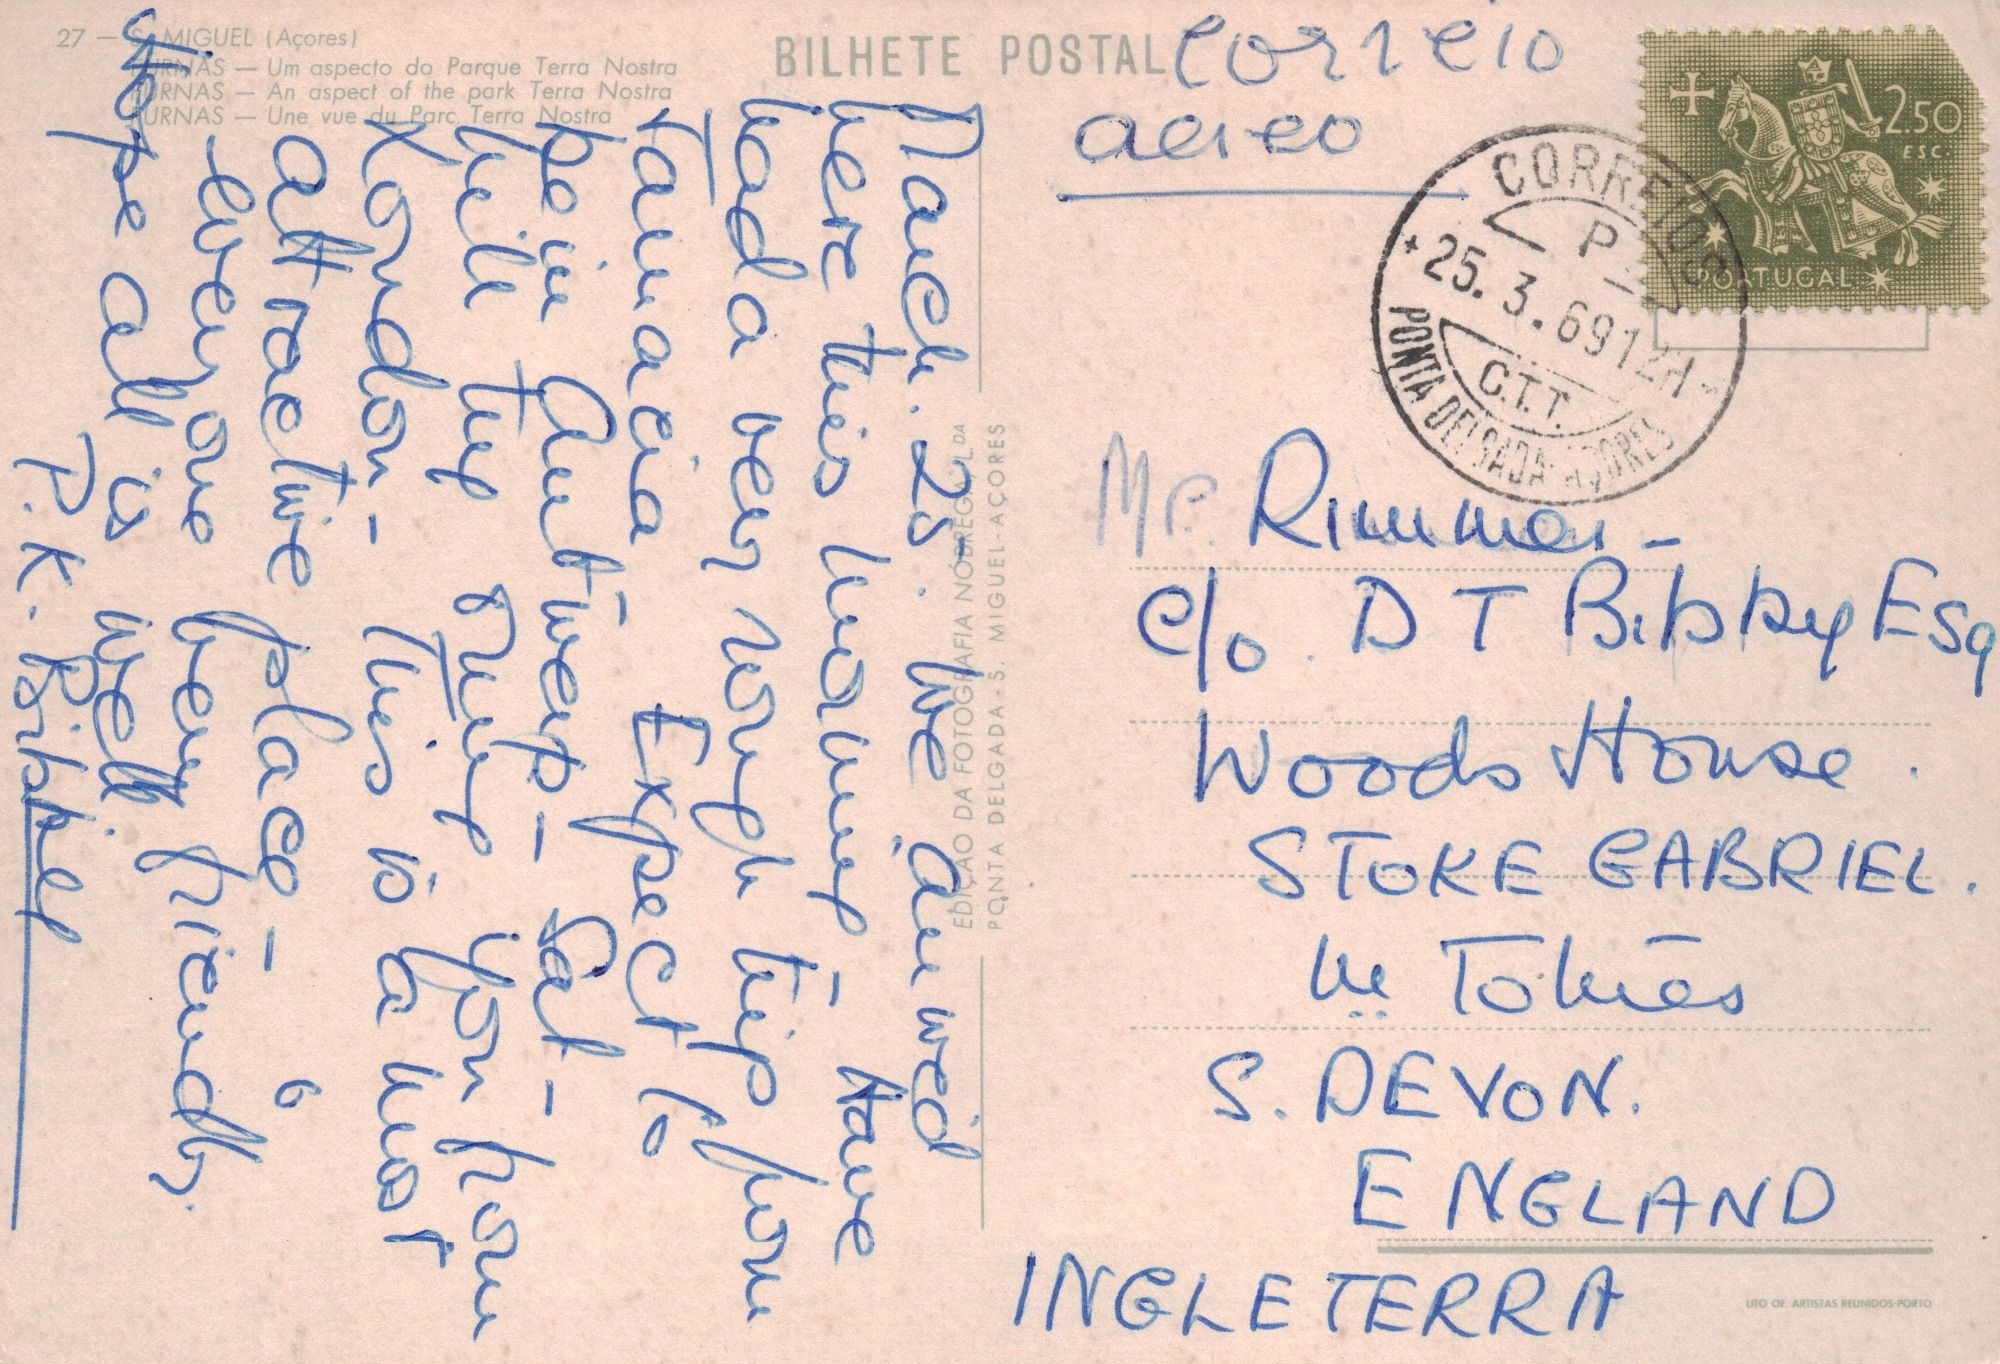 27 — S. MIGUEL (Açores)
FURNAS — Um aspecto do Parque Terra Nostra
FURNAS — An aspect of the park Terra Nostra
FURNAS — Une vue du Parc Terra Nostra
BILHETE POSTAL
Correio
aereo
2$50
ESC.
PORTUGAL
CORREIOS
P.
25.3.69 12H
C.T.T.
PONTA DELGADA-AÇORES
March. 25. We arrived
here this morning – Have
had a very rough trip from
Jamaica Expect to
be in Antwerp – Sat –
Will try ring you from
London – This is a most
attractive place –
everyone very friendly.
Hope all is well
P.K. Bibby
EDIÇÃO DA FOTOGRAFIA NÓBREGA, LDA
PONTA DELGADA - S. MIGUEL - AÇORES
Mr. Rimmer –
c/o. D T Bibby Esq
Woods House.
STOKE GABRIEL.
Nr Totnes
S. DEVON.
ENGLAND
INGLETERRA
LITO OF. ARTISTAS REUNIDOS-PORTO